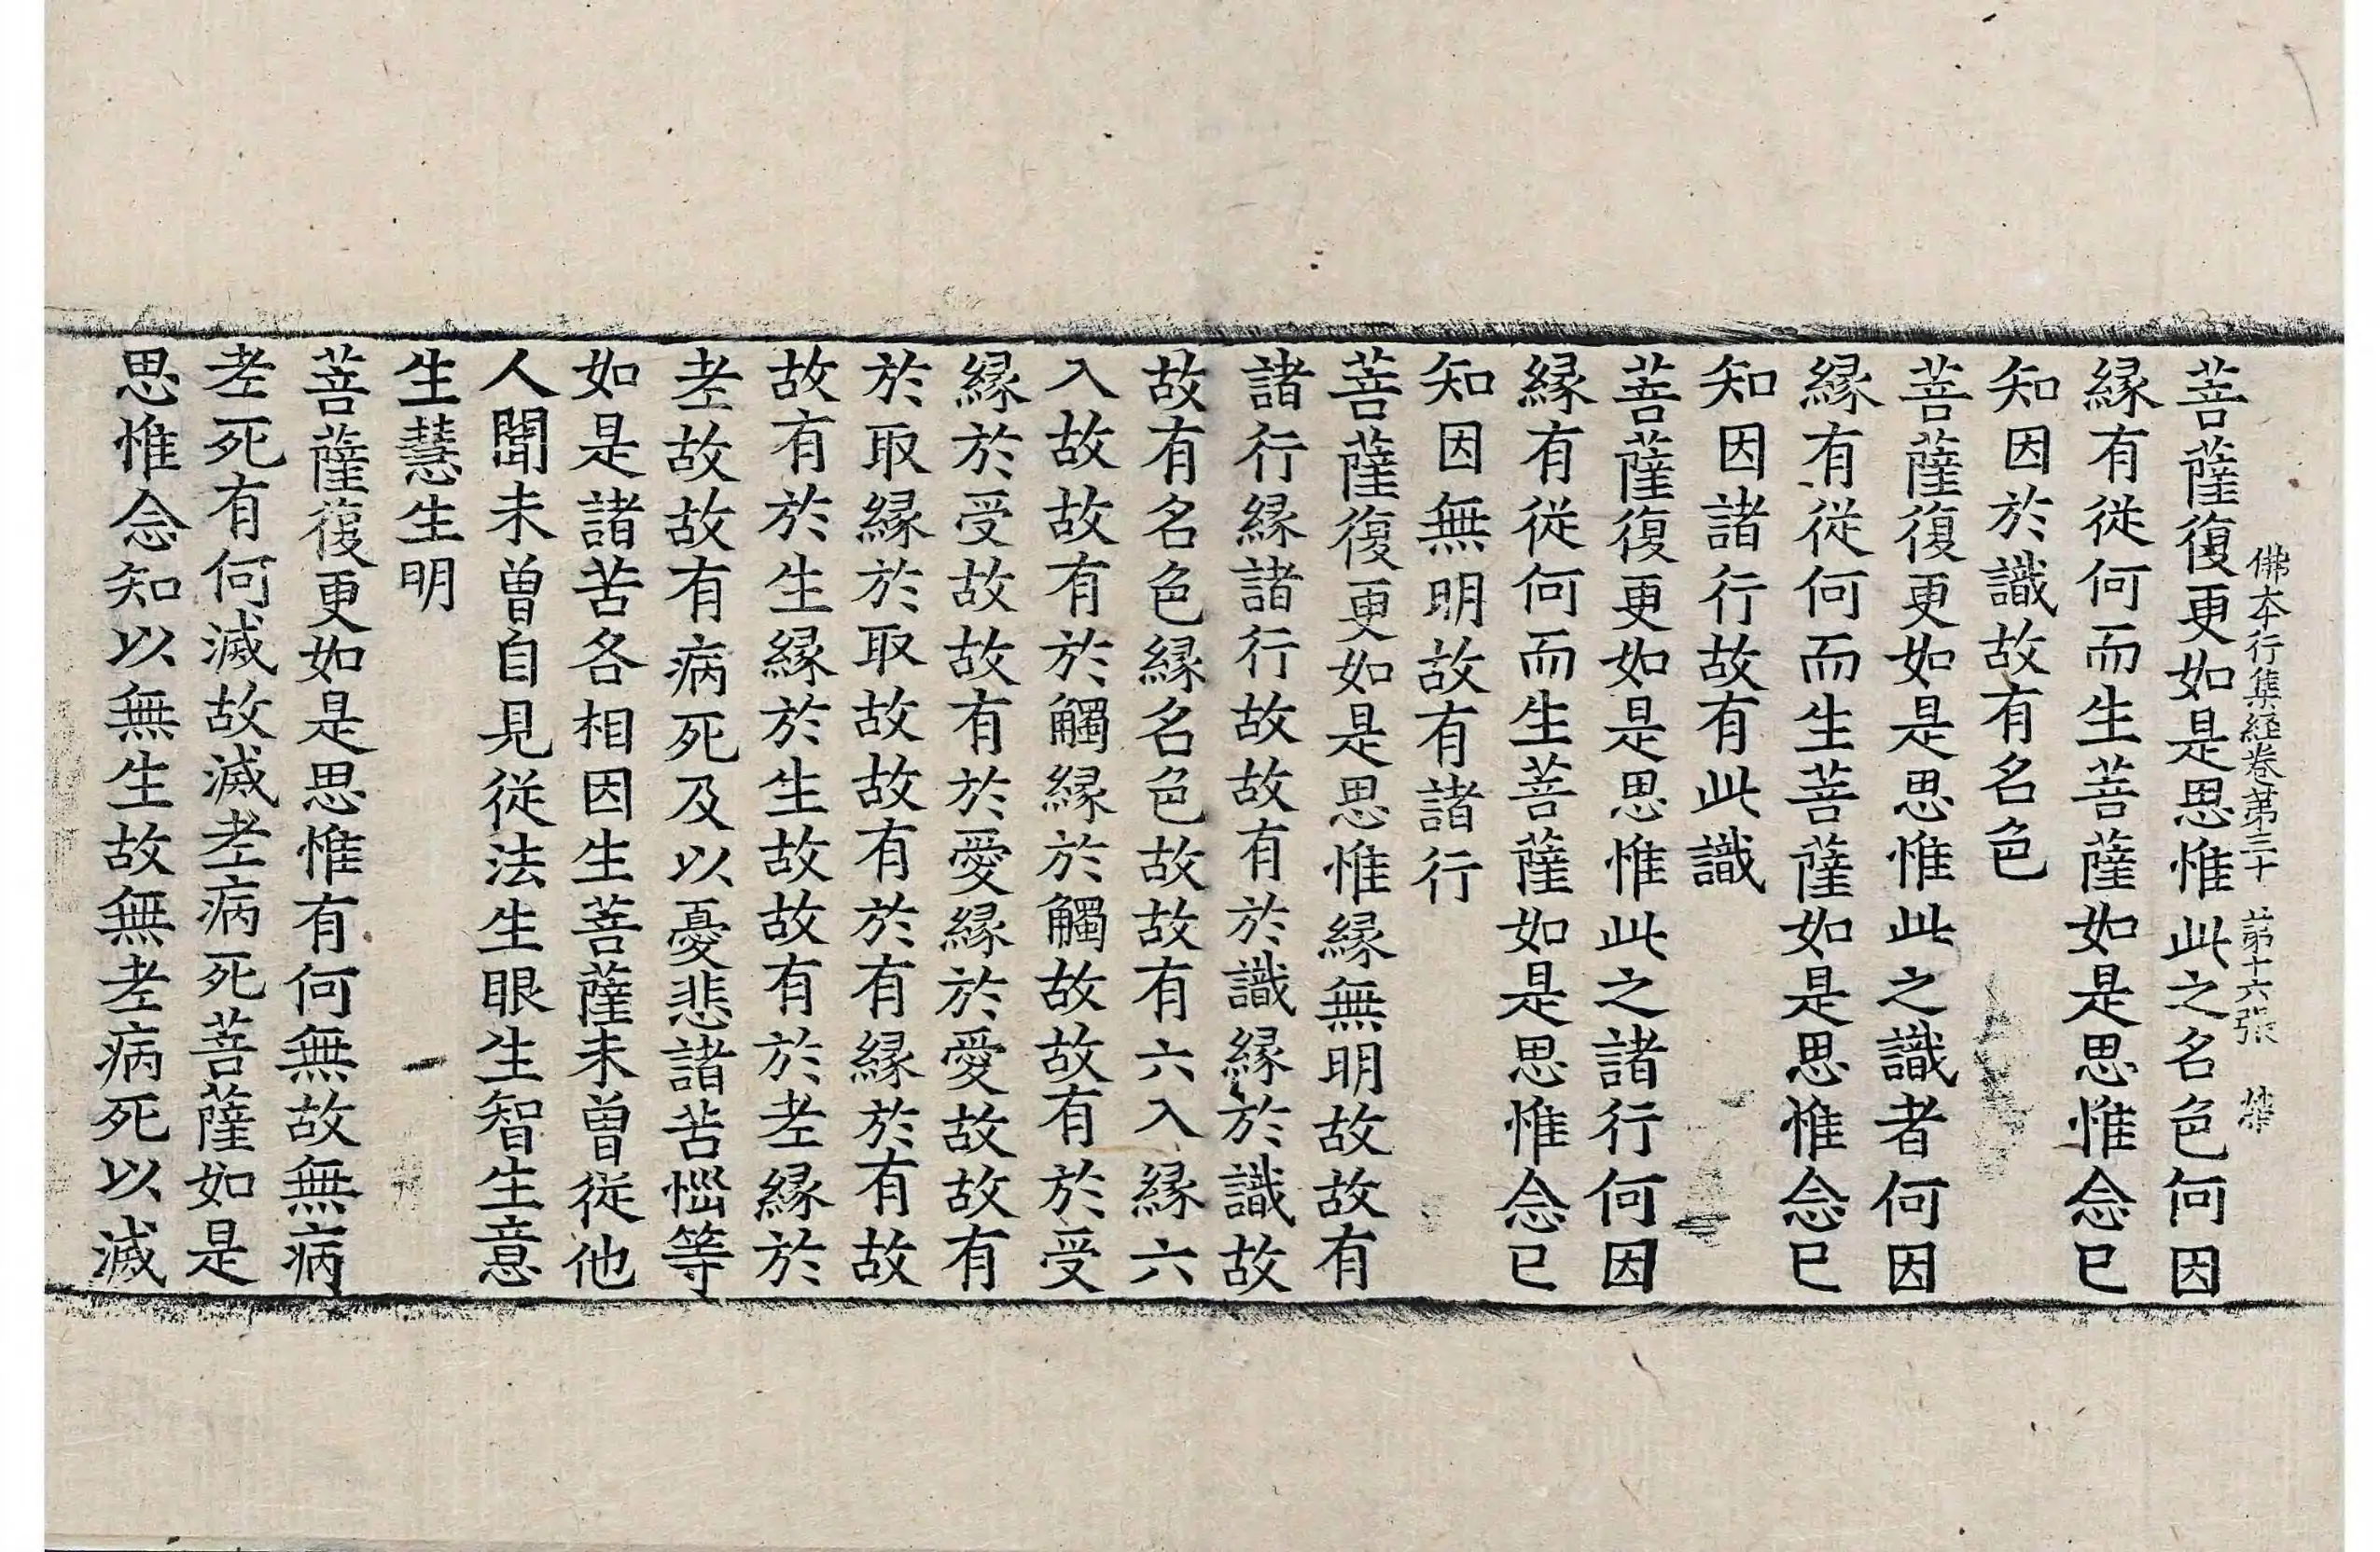 佛本行集経卷第三十 第十六張
菩薩復更如是思惟此之名色何因
縁有從何而生菩薩如是思惟念已
知因於識故有名色
菩薩復更如是思惟此之識者何因
縁有從何而生菩薩如是思惟念已
知因諸行故有此識
菩薩復更如是思惟此之諸行何因
縁有從何而生菩薩如是思惟念已
知因無明故有諸行
菩薩復更如是思惟縁無明故故有
諸行縁諸行故故有於識縁於識故
故有名色縁名色故故有六入縁六
入故故有於觸縁於觸故故有於受
縁於受故故有於愛縁於愛故故有
於取縁於取故故有於有縁於有故
故有於生縁於生故故有於老縁於
老故故有病死及以憂悲諸苦惱等
如是諸苦各相因生菩薩未曾從他
人聞未曾自見從法生眼生智生意
生慧生明
菩薩復更如是思惟有何無故無病
老死有何滅故滅老病死菩薩如是
思惟念知以無生故無老病死以滅